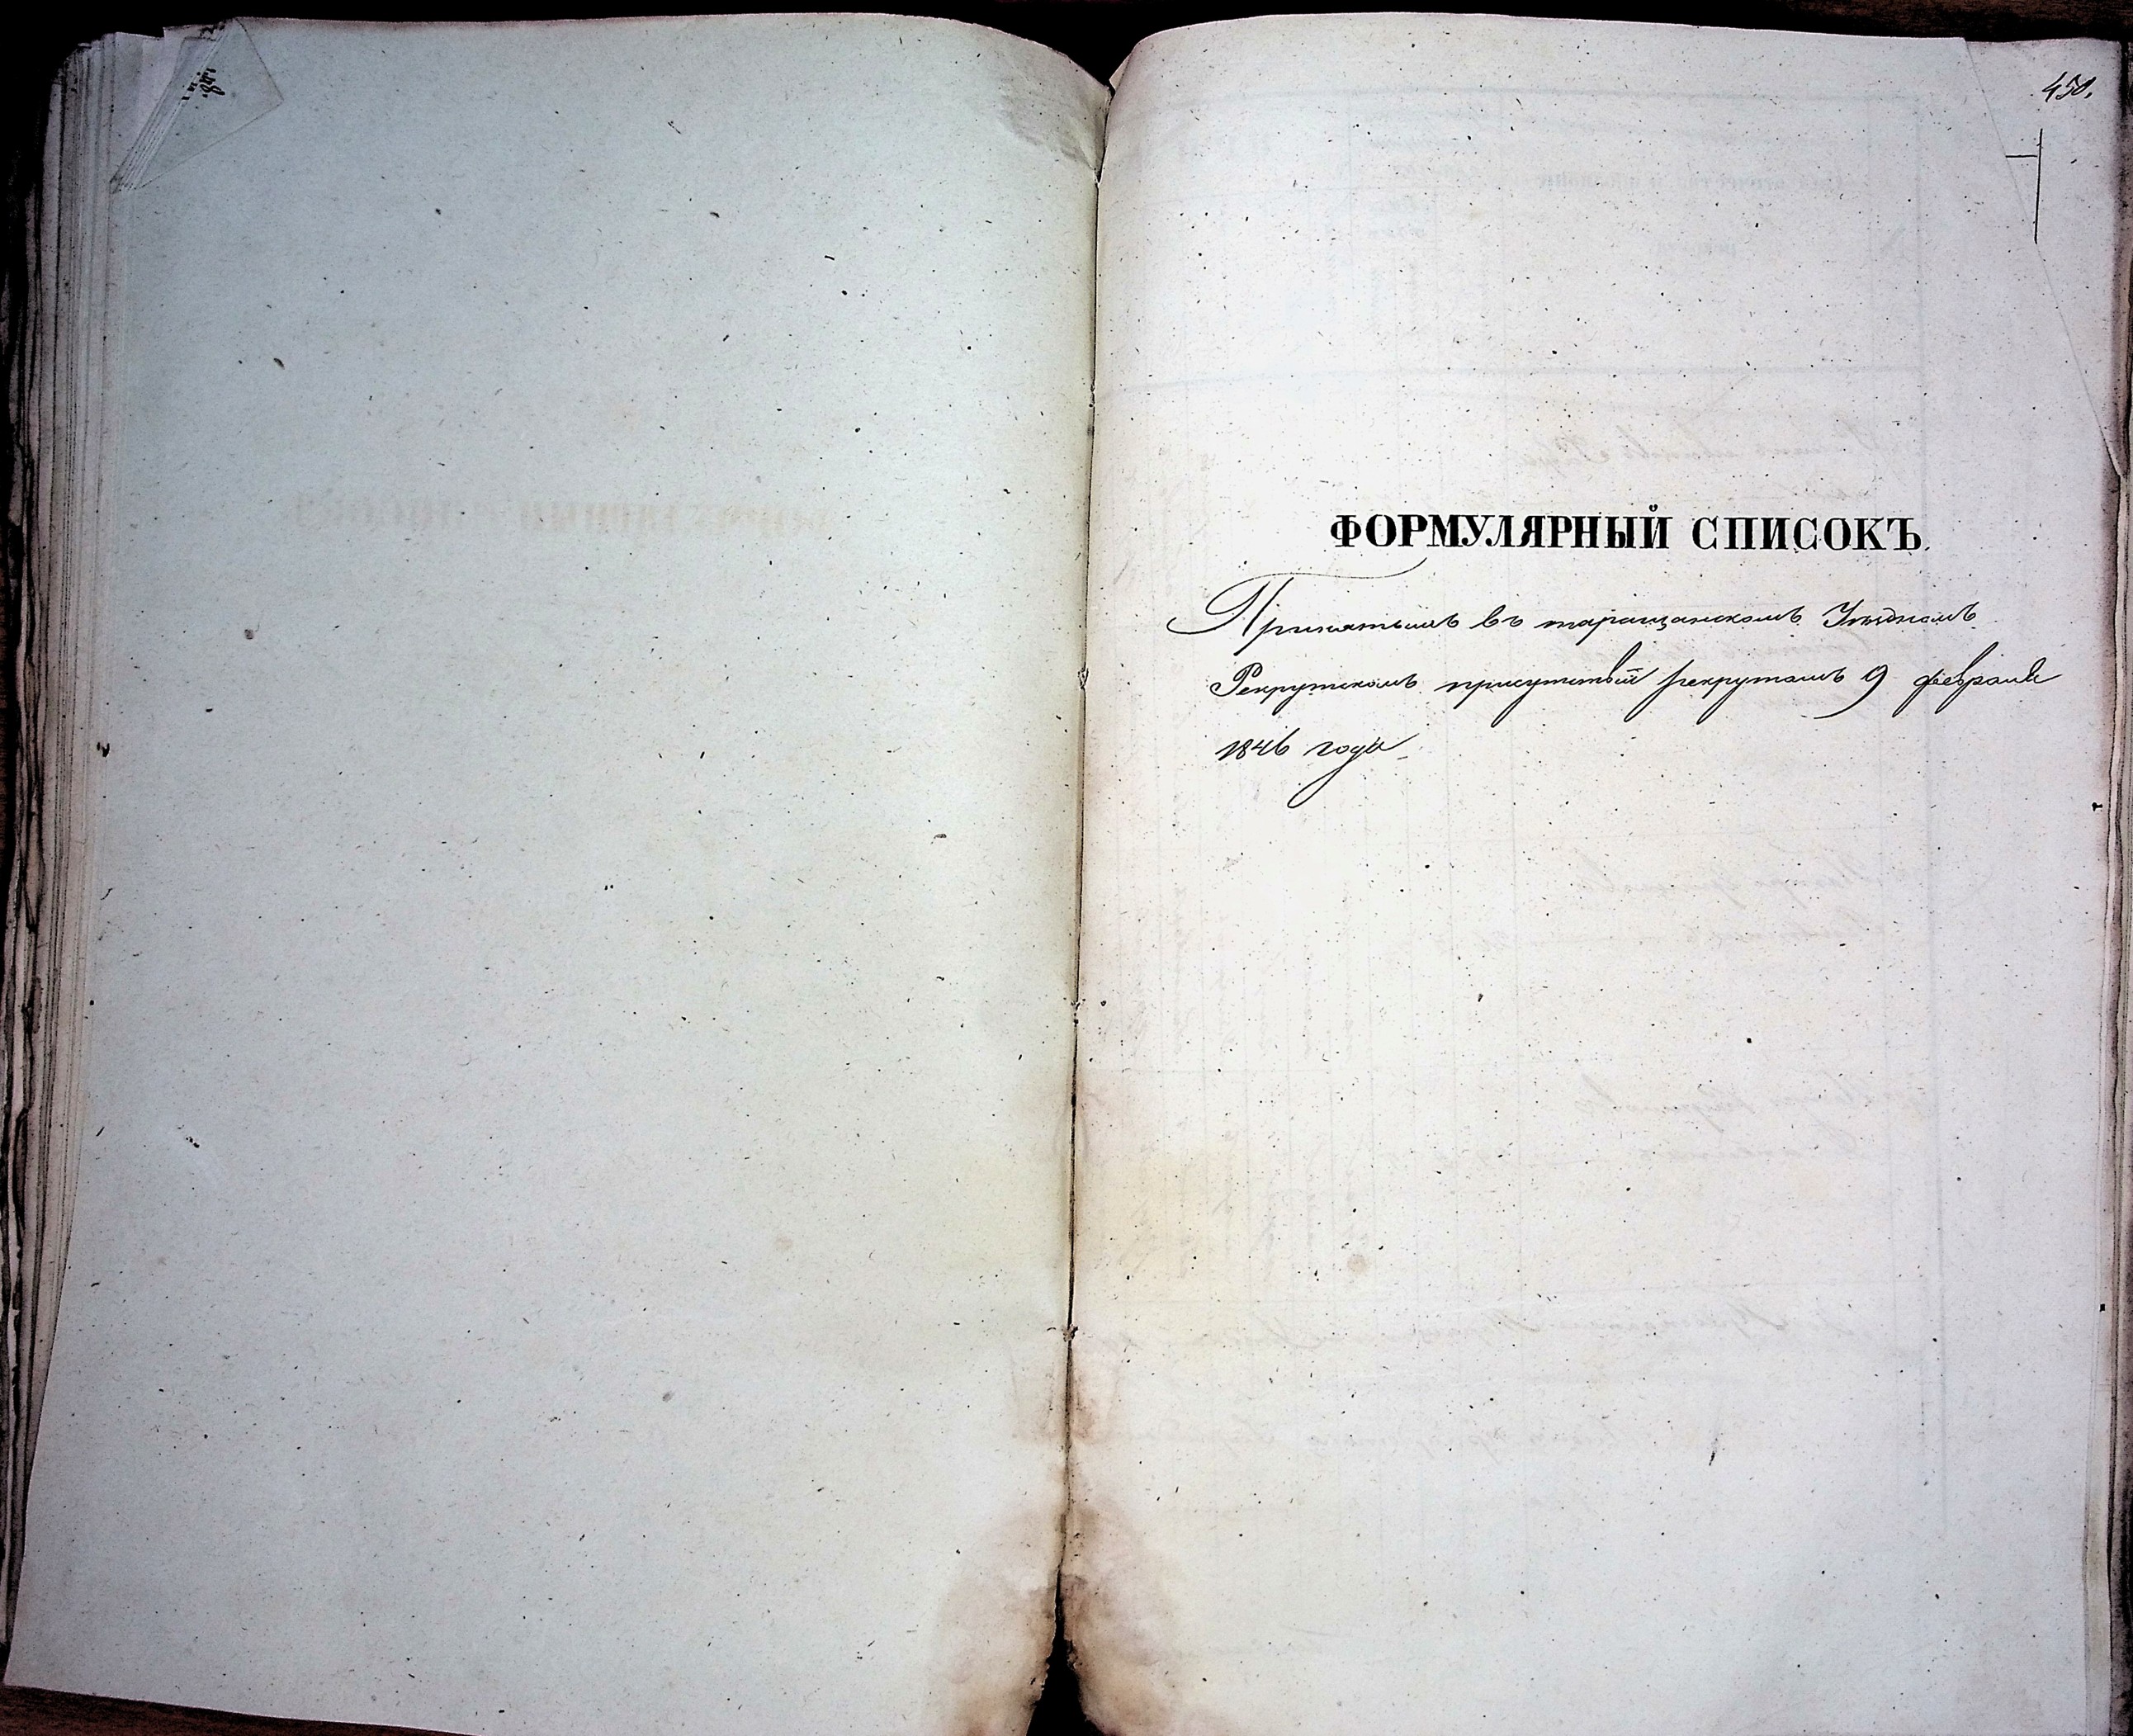 450.
ФОРМУЛЯРНЫЙ СПИСОКЪ
Принятымъ въ таращанскомъ Уѣздномъ
Рекрутскомъ присутствіи рекрутамъ 9 февраля
1846 года